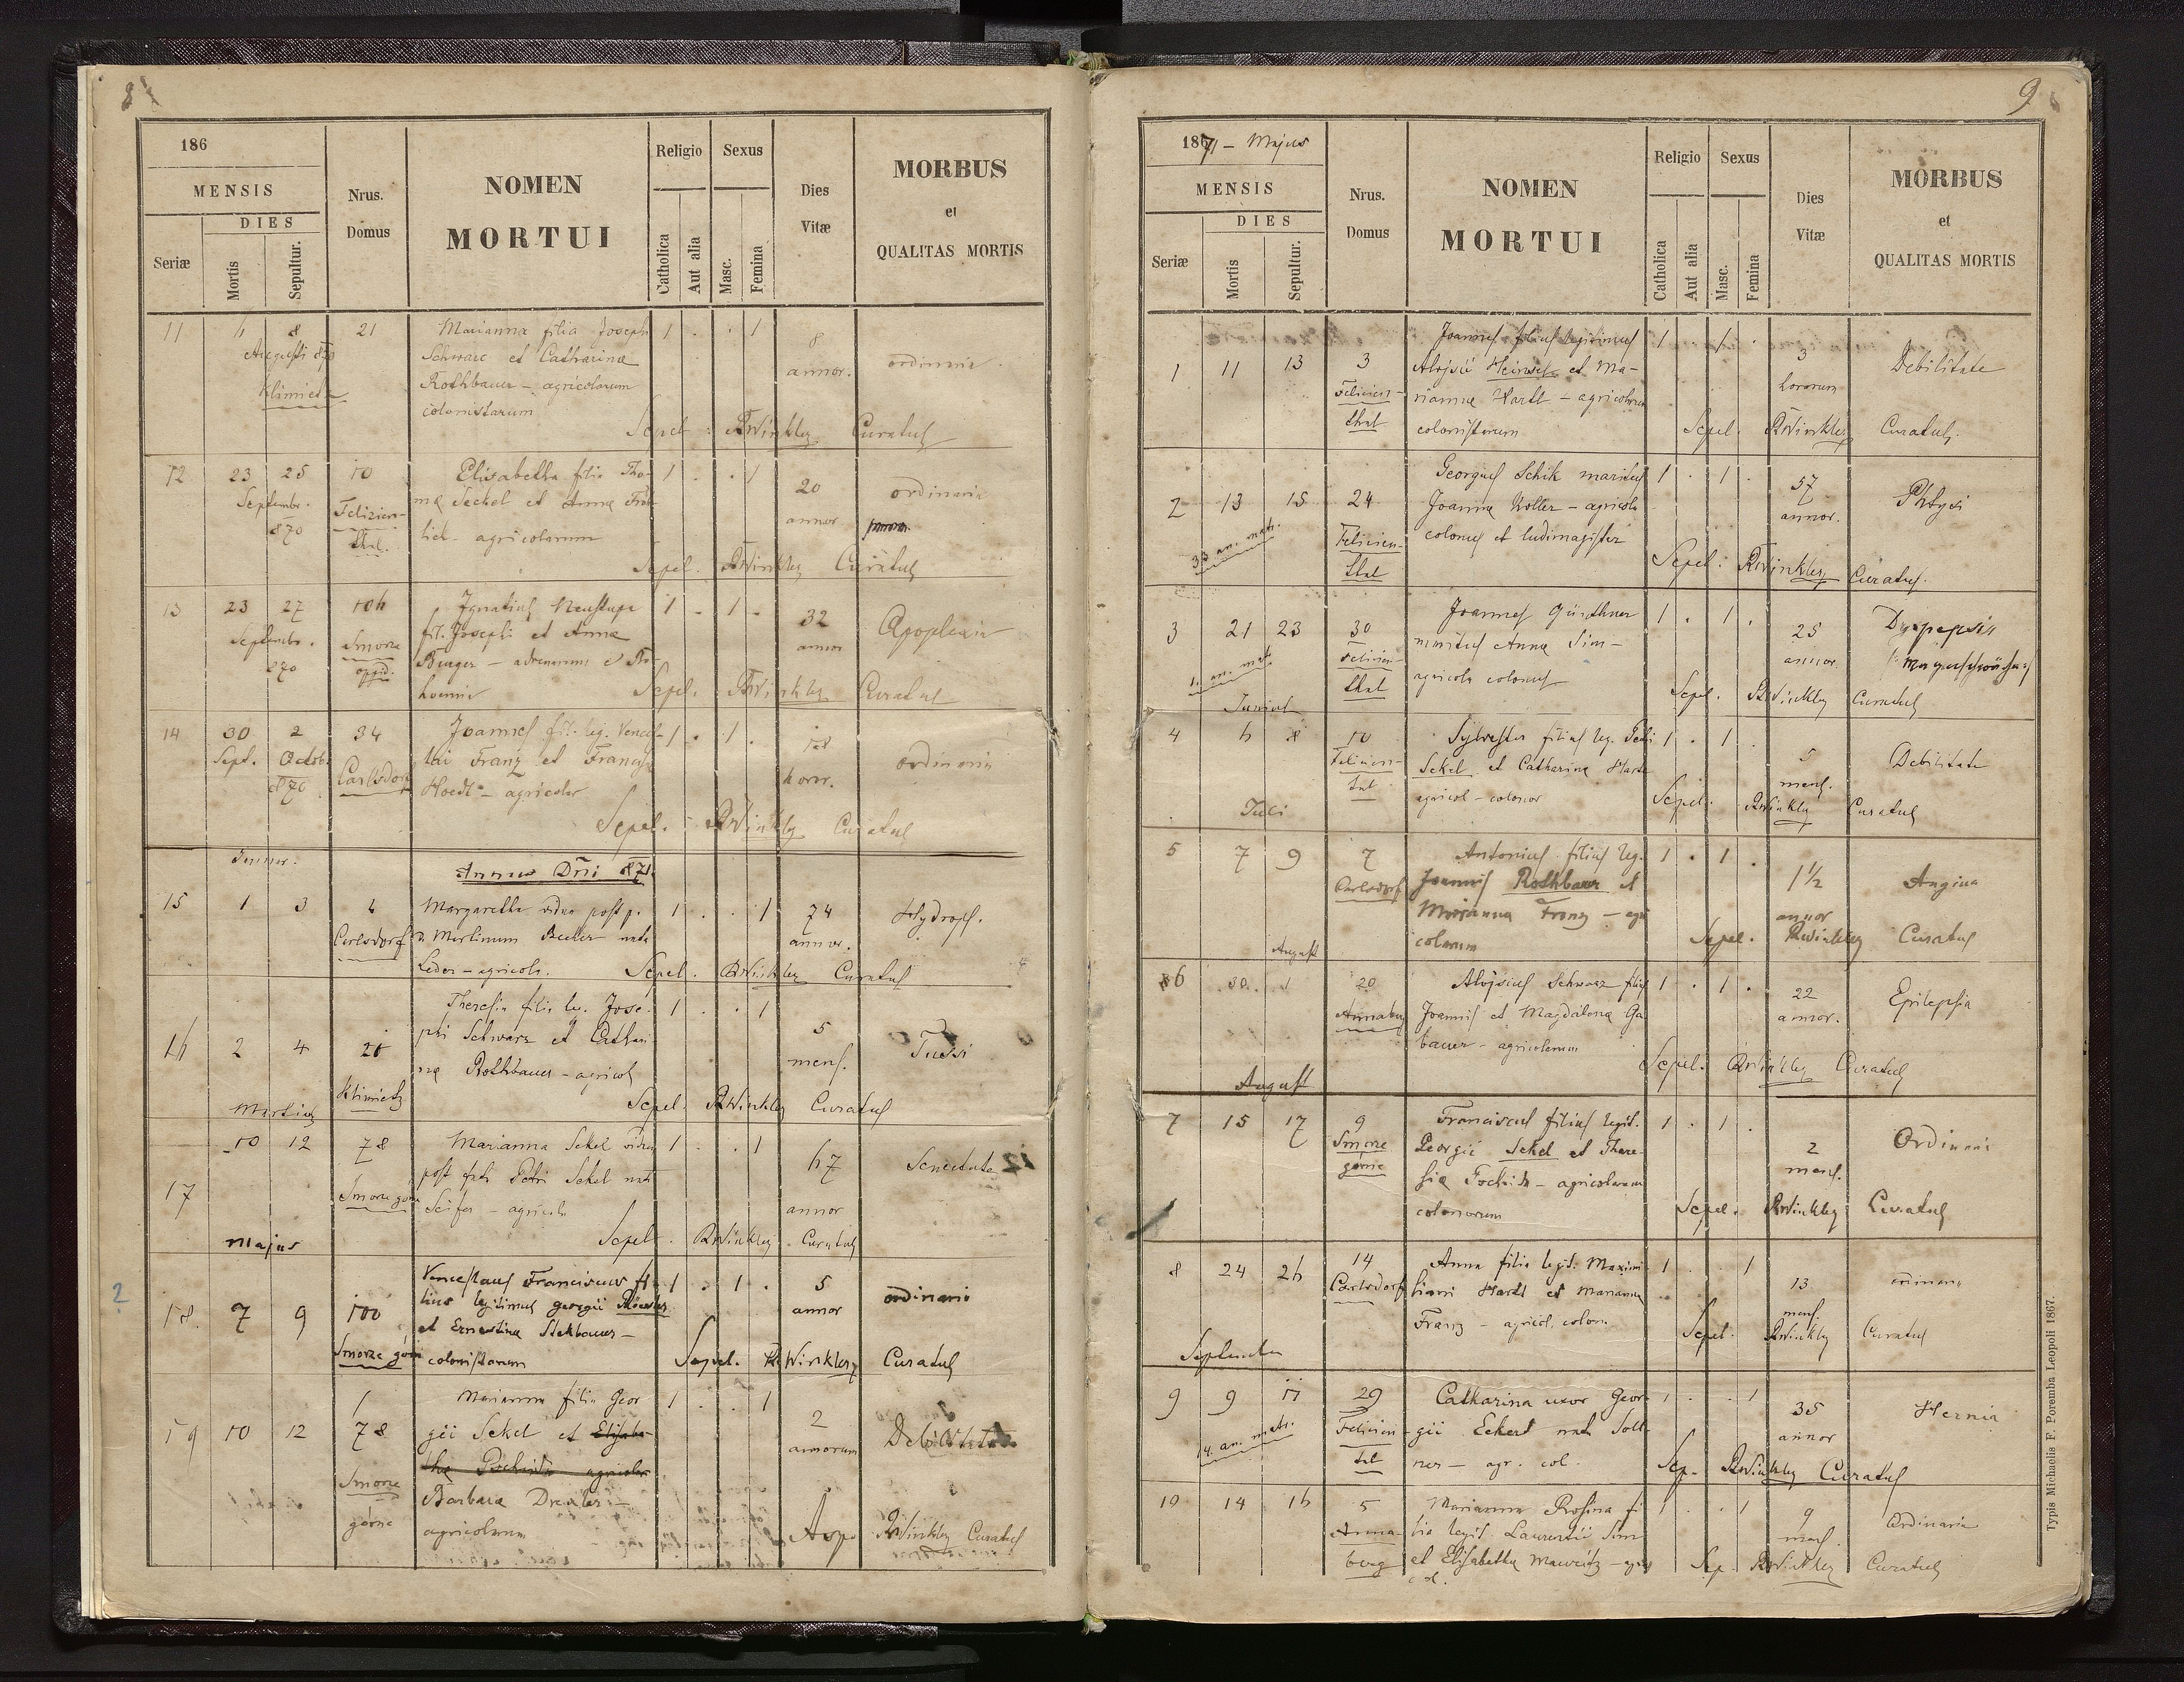 8
186
MENSIS
DIES
Seriæ
Mortis
Sepultur.
Nrus.
Domus
NOMEN
MORTUI
Religio
Catholica
Aut alia
Sexus
Masc.
Femina
Dies
Vitæ
MORBUS
et
QUALITAS MORTIS
11 8 21 Marianna filia Joseph 1 . . 1 8
Augusti 870 Schwarc et Catharinæ annor. ordinaria
Rothbauer – agricolarum
colonistarum
Sepel: Winkler Curatus
12 23 25 10 Elisabetha filia Tho- 1 . . 1 20 ordinaria
Septembr. 870 Felizien- mæ Seckel et Annæ annor
thal. agricolarum
Sepel. Winkler Curatus
13 23 27 Ignatius 1 . 1 . 32 Apoplexia
Septembr. 870 Smorze fil. Josephi et Annæ annor
oppid. Berger –
Sepel. Winkler Curatus
14 30 2 34 Joannes fil. leg. Vences- 1 . 1 . 18 ordinaria
Sept. Octob. 870 Carlsdorf lai Franz et Francisca horar.
Hoedl – agricolar
Sepel. Winkler Curatus
Januar.
Annus Dni 871
15 1 3 Margaretha vidua post p. 1 . . 1 74 Hydrops.
Carlsdorf Martinum Becher nata annor.
Leder – agricola. Sepel. Winkler Curatus
16 2 4 21 Theresia filia leg. Jose- 1 . . 1 5 Tussi
phi Schwarz et Cathari mens.
næ Rothbauer – agricol
Klimietz
Sepel. Winkler Curatus
Martius
17 10 12 78 Marianna Sekel vidua 1 . . 1 67 Senectute
Smorze gorne post Petri Sekel nata annor
Seifer – agricola
Sepel. Winkler Curatus
Majus
2
18. 7 9 100 Venceslaus Franciscus fi- 1 . 1 . 5 ordinaria
lius legitimus georgii annor
et Ernestinæ Stekbauer –
Smorze gorne colonistarum Sepel. Winkler Curatus
19 10 12 78 Marianna filia Geor 1 . . 1 2 Debilitate
gii Sekel et Elisabe- annorum
thæ agricolar
Smorze gorne Barbara Drexler –
agricolarum Winkler Curatus
9
1871 – Majus
MENSIS
DIES
Seriæ
Mortis
Sepultur.
Nrus.
Domus
NOMEN
MORTUI
Religio
Catholica
Aut alia
Sexus
Masc.
Femina
Dies
Vitæ
MORBUS
et
QUALITAS MORTIS
1 11 13 3 Joannes filius legitimus 1 . 1 . 3 Debilitate
Felicien- Alojsii et Ma- horarum
thal riannæ Hartl – agricolarum
colonistarum Sepel. Winkler Curatus.
2 13 15 24 Georgius Schik maritus 1 . 1 . 57 Phtysi
33 an. matr. Felicien- Joannæ Koller – agricola annor.
thal colonus et ludimagister
Sepel: Winkler Curatus.
3 21 23 30 Joannes Günthner 1 . 1 . 25 Dyspepsia
an. mat. Felicien- maritus Annæ Sim – annor.
thal agricola colonus
Sepel. Winkler Curatus
Junius
4 6 8 10 Sylvester filius leg. Petri 1 . 1 . 5 Debilitate
Felicien- Sekel et Catharinæ Hartl mens.
tal agricol – colonor Sepel. Winkler Curatus
Juli
5 7 9 7 Antonius filius leg. 1 . 1 . 1½ Angina
Carlsdorf Joannis Rothbauer et annor
Marianna Franz – agri
colarum Sepel. Winkler Curatus
August
6 30. 1 20 Alojsius Schwarz filius 1 . 1 . 22 Epilepsia
Annaberg Joannis et Magdalena Ga- annor.
bauer – agricolarum
Sepel: Winkler Curatus
August
7 15 17 9 Franciscus filius legit. 1 . 1 . 2 Ordinaria
Smorze gorne Georgii Sekel et There- mens.
siæ – agricolarum
colonorum Sepel. Winkler Curatus
8 24 26 14 Anna filia legit. Maximi- 1 . . 1 13 ordinaria
Carlsdorf liani Hartl et Marianna mens.
Franz – agricol. colon. Sepel. Winkler Curatus
September
9 9 11 29 Catharina uxor Geor- 1 . . 1 35 Hernia
14. an. matr. Felicien- gii Eckert nata annor
tal ner – agr. col. Sep. Winkler Curatus
10 14 16 5 Marianna Rosina fi- 1 . . 1 9 Ordinaria
Anna- lia legit. Laurentii Sim mens.
berg et Elisabetha Mauritz – agric
col. Sep. Winkler Curatus
Typis Michaelis F. Poremba Leopoli 1867.